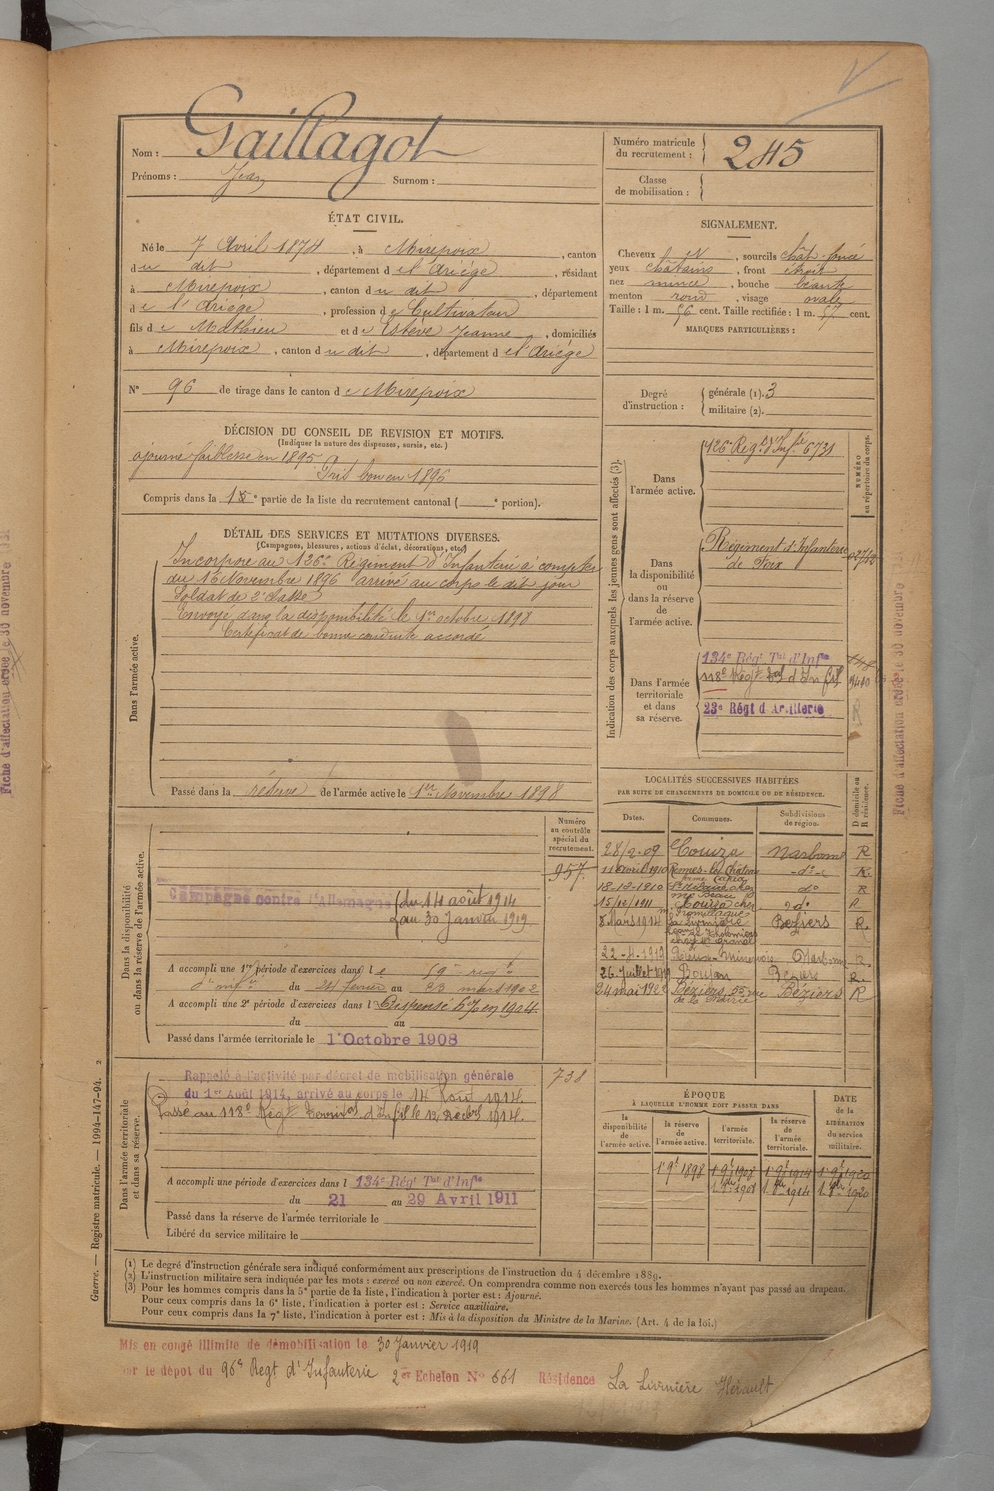 Nom : Gaillagot
Prénoms : Jean Surnom :
Numéro matricule du recrutement : 245
Classe de mobilisation :
ÉTAT CIVIL.
Né le 7 Avril 1874, à Mirepoix, canton
du dit, département de l'Ariège, résidant
à Mirepoix, canton du dit, département
de l'Ariège, profession de Cultivateur
fils de Mathieu et de Estève Jeanne, domiciliés
à Mirepoix, canton du dit, département de l'Ariège
N° 96 de tirage dans le canton de Mirepoix
SIGNALEMENT.
Cheveux et, sourcils chât. foncé
yeux châtains, front étroit
nez mince, bouche
menton rond, visage ovale
Taille : 1 m. 56 cent. Taille rectifiée : 1 m. 57 cent.
MARQUES PARTICULIÈRES :
Degré d'instruction : générale (1). 3
militaire (2).
DÉCISION DU CONSEIL DE REVISION ET MOTIFS.
(Indiquer la nature des dispenses, sursis, etc.)
ajourné faiblesse en 1895
Pris bon en 1896
Compris dans la 1e partie de la liste du recrutement cantonal ( e portion).
DÉTAIL DES SERVICES ET MUTATIONS DIVERSES.
(Campagnes, blessures, actions d'éclat, décorations, etc.)
Dans l'armée active.
Incorporé au 126e Régiment d'Infanterie à compter
du 16 Novembre 1896 arrivé au corps le dit jour
Soldat de 2e classe
Envoyé dans la disponibilité le 1er octobre 1898
Certificat de bonne conduite accordé
Passé dans la réserve de l'armée active le 1er Novembre 1898
Indication des corps auxquels les jeunes gens sont affectés (3).
NUMÉRO au répertoire du corps.
Dans l'armée active.
126e Régt d'Infie 6731
Dans la disponibilité ou dans la réserve de l'armée active.
Régiment d'Infanterie
de Foix
Dans l'armée territoriale et dans sa réserve.
134e Régt Tal d'Infie
118e Régt Tal d'Infie
23e Régt d'Artillerie
Fiche d'affectation créée le 30 novembre
Dans la disponibilité ou dans la réserve de l'armée active.
Numéro au contrôle spécial du recrutement.
957
Campagne contre l'Allemagne du 14 août 1914
au 30 Janvier 1919
A accompli une 1re période d'exercices dans le 59e régt
d'Infie du 24 février au 23 mars 1902
A accompli une 2e période d'exercices dans l Dispensé en 1904
du au
Passé dans l'armée territoriale le 1er Octobre 1908
LOCALITÉS SUCCESSIVES HABITÉES
PAR SUITE DE CHANGEMENTS DE DOMICILE OU DE RÉSIDENCE.
Dates. Communes. Subdivisions de région. D domicile ou R résidence.
28/2.09 Couiza Narbonne R
11 avril 1910 Rennes-les-Château -do- R
18-12-1910 do R
15/12/1911 Couiza chez do R
8 Mars 1914 La Livinière Béziers R.
22-4-1919 Rieux-Minervois Narbonne R
26 Juillet 1919 Boujan Béziers R.
24 mai 1928 Béziers, 55 rue Béziers R
de la Mairie
Dans l'armée territoriale et dans sa réserve.
738
Rappelé à l'activité par décret de mobilisation générale
du 1er Août 1914, arrivé au corps le 14 Août 1914.
Passé au 118e Régt Territal d'Infie le 12 1914.
A accompli une période d'exercices dans l 134e Régt Tal d'Infie
du 21 au 29 Avril 1911
Passé dans la réserve de l'armée territoriale le
Libéré du service militaire le
ÉPOQUE
À LAQUELLE L'HOMME DOIT PASSER DANS
la disponibilité de l'armée active. la réserve de l'armée active. l'armée territoriale. la réserve de l'armée territoriale.
DATE de la LIBÉRATION du service militaire.
1er 9bre 1898 1er 9bre 1908 1er 9bre 1914 1er 9bre 1920
Guerre. — Registre matricule. — 1994-147-94. 2
(1) Le degré d'instruction générale sera indiqué conformément aux prescriptions de l'instruction du 4 décembre 1889.
(2) L'instruction militaire sera indiquée par les mots : exercé ou non exercé. On comprendra comme non exercés tous les hommes n'ayant pas passé au drapeau.
(3) Pour les hommes compris dans la 5e partie de la liste, l'indication à porter est : Ajourné.
Pour ceux compris dans la 6e liste, l'indication à porter est : Service auxiliaire.
Pour ceux compris dans la 7e liste, l'indication à porter est : Mis à la disposition du Ministre de la Marine. (Art. 4 de la loi.)
Mis en congé illimité de démobilisation le 30 Janvier 1919
le dépôt du 96e Régt d'Infanterie 2e Echelon N° 661 Résidence La Livinière Hérault